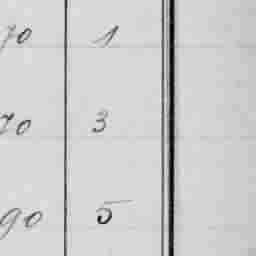 70 1
70 3
90 5